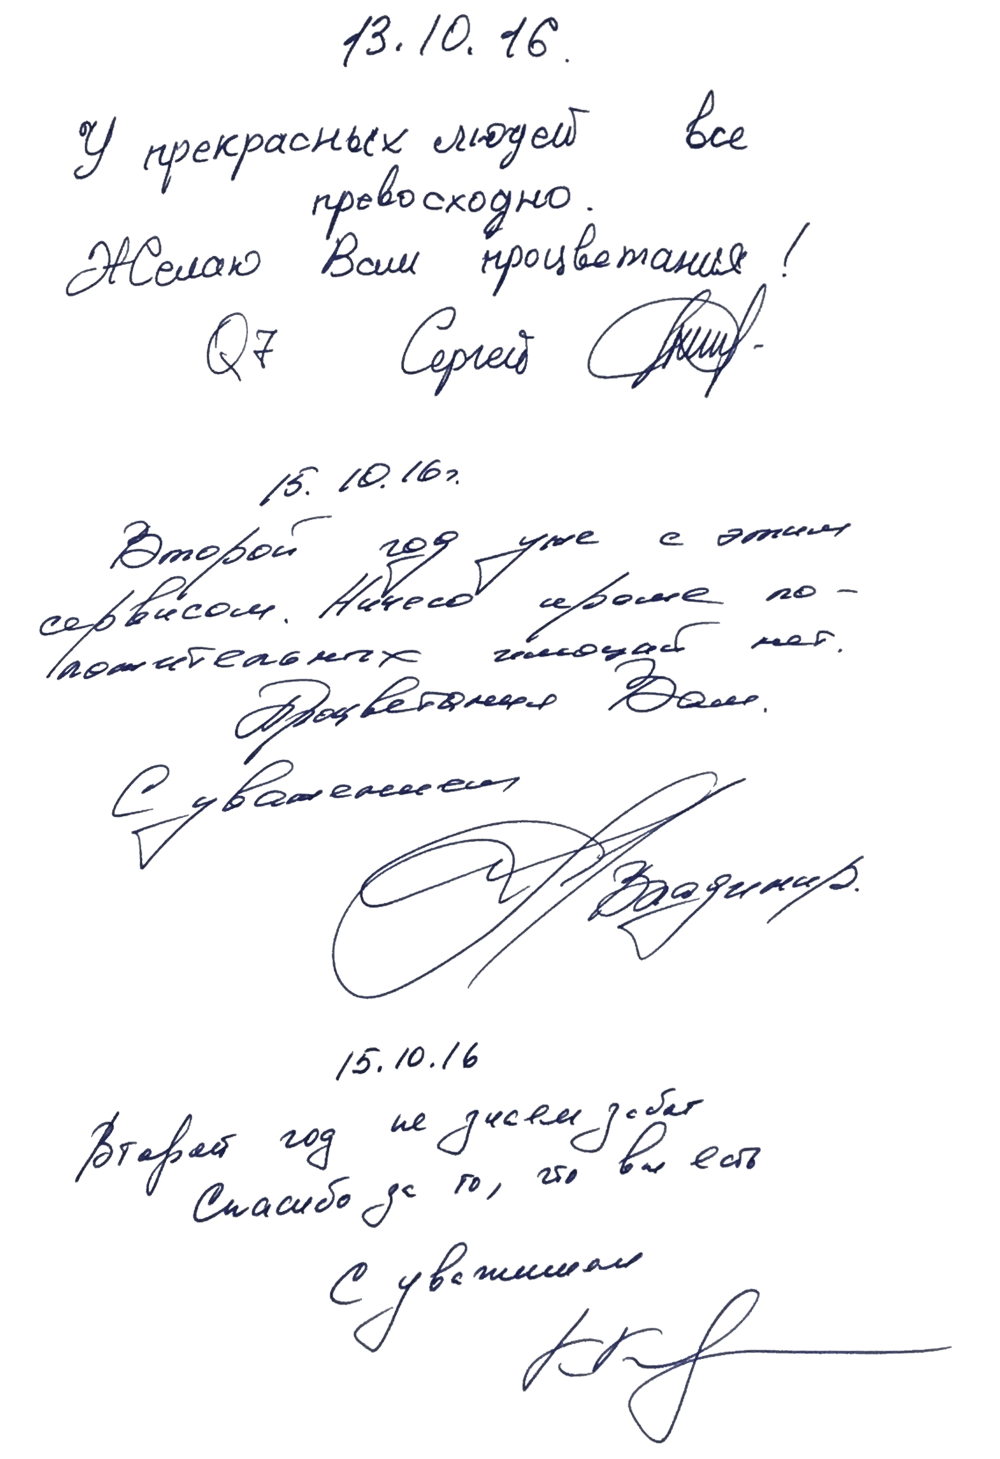 13.10.16.
У прекрасных людей все
превосходно.
Желаю Вам процветания!
Q7 Сергей
15.10.16г.
Второй год уже с этим
сервисом. Ничего кроме по-
ложительных эмоций нет.
Процветания Вам.
С уважением
Владимир.
15.10.16
Второй год не знаем забот
Спасибо за то, что вы есть
С уважением